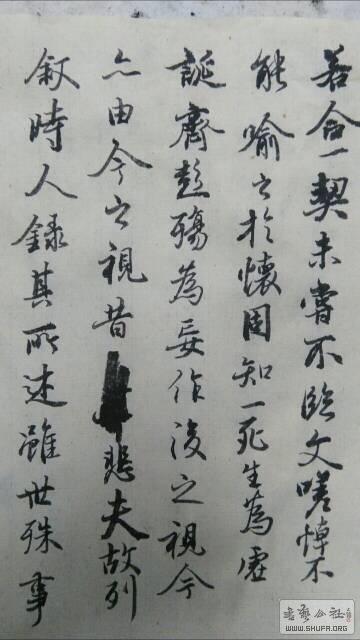 若合一契未嘗不臨文嗟悼不
能喻之於懷固知一死生為虛
誕齊彭殤為妄作後之視今
亦由今之視昔悲夫故列
叙時人録其所述雖世殊事
书艺公社
WWW.SHUFA.ORG